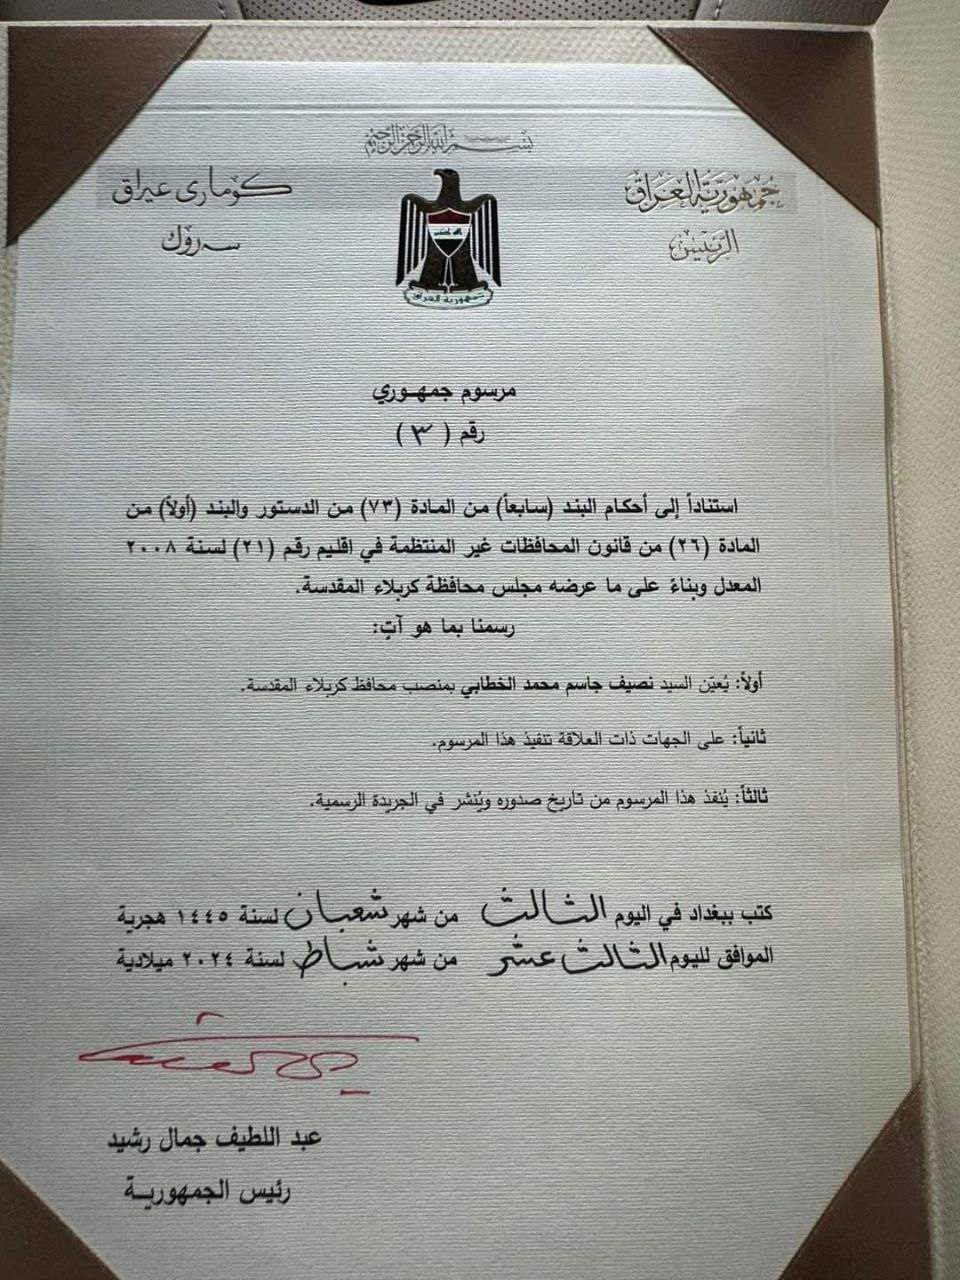 بسم الله الرحمن الرحيم
جمهورية العراق
الرئيس
كۆماری عیراق
سەرۆك
الله اكبر
جمهورية العراق
مرسوم جمهوري
رقم ( ٣ )
استناداً إلى أحكام البند (سابعاً) من المادة (٧٣) من الدستور والبند (أولاً) من
المادة (٢٦) من قانون المحافظات غير المنتظمة في اقليم رقم (٢١) لسنة ٢٠٠٨
المعدل وبناءً على ما عرضه مجلس محافظة كربلاء المقدسة.
رسمنا بما هو آتٍ:
أولاً: يُعيّن السيد نصيف جاسم محمد الخطابي بمنصب محافظ كربلاء المقدسة.
ثانياً: على الجهات ذات العلاقة تنفيذ هذا المرسوم.
ثالثاً: يُنفذ هذا المرسوم من تاريخ صدوره ويُنشر في الجريدة الرسمية.
كتب ببغداد في اليوم الثالث من شهر شعبان لسنة ١٤٤٥ هجرية
الموافق لليوم الثالث عشر من شهر شباط لسنة ٢٠٢٤ ميلادية
عبد اللطيف جمال رشيد
رئيس الجمهوريـة